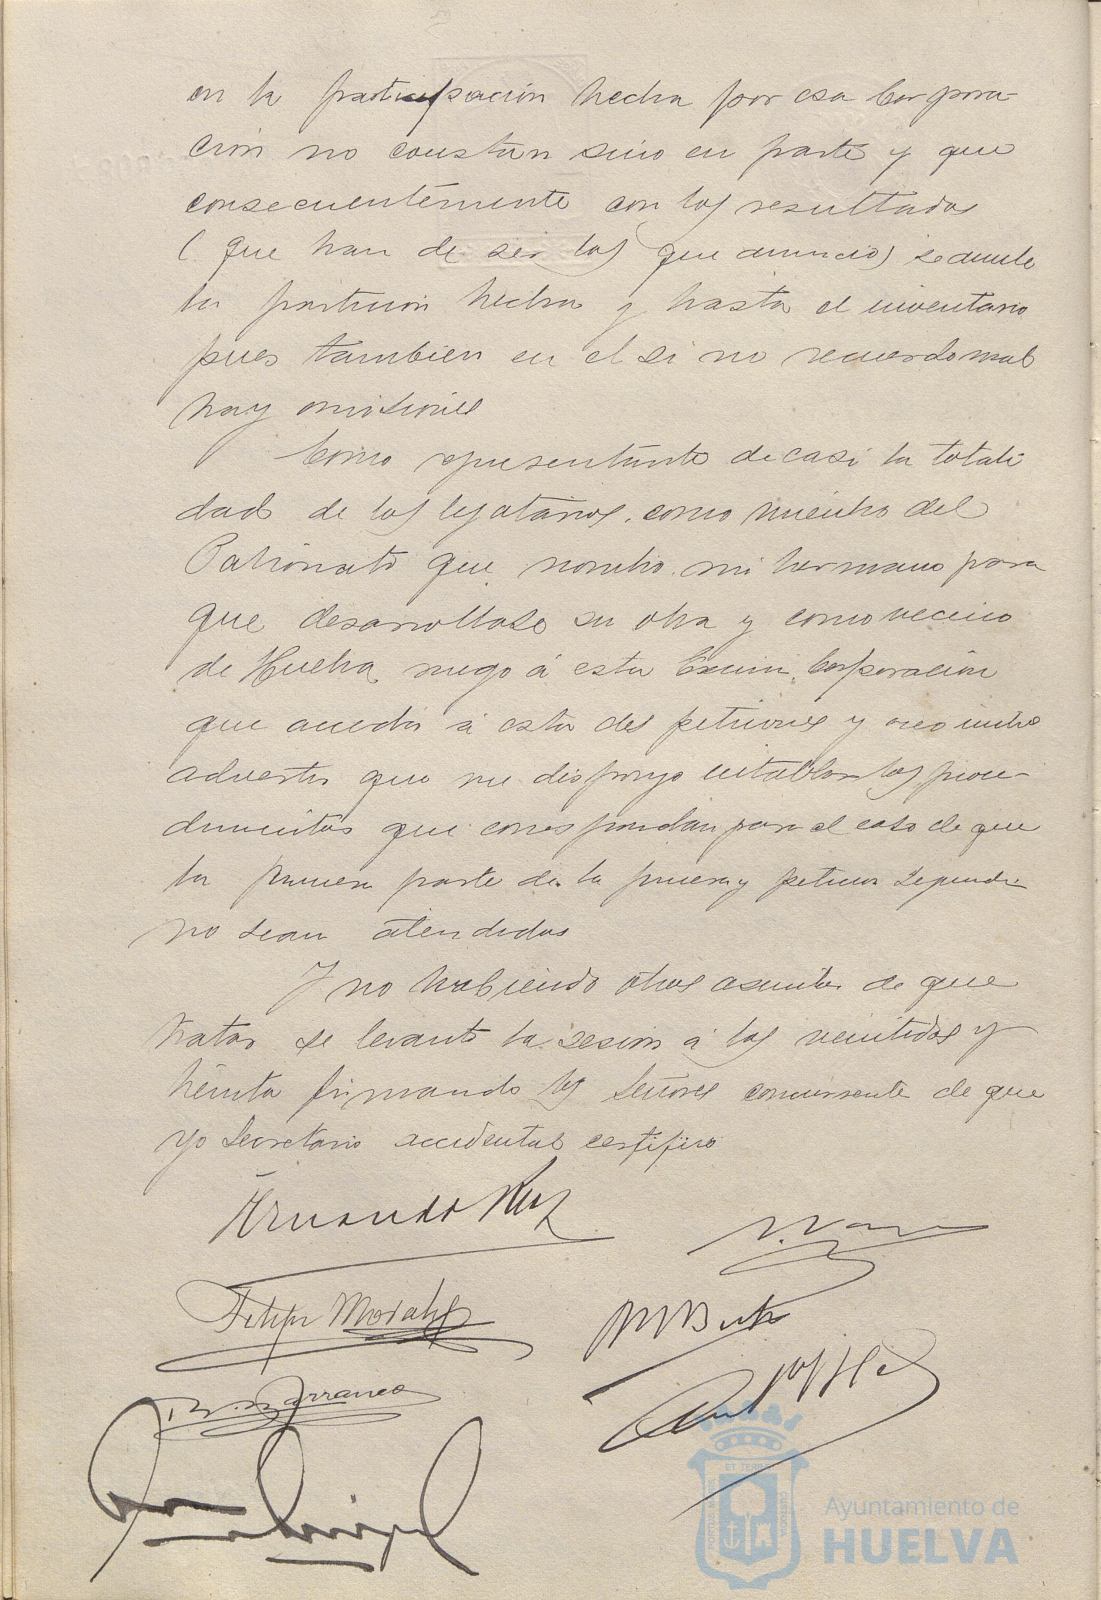 en la participación hecha por esa Corpora-
ción no constan sino en parte y que
consecuentemente con los resultados
(que han de ser los que anuncio) se anule
la partición hecha y hasta el inventario
pues tambien en el si no recuerdo mal
hay omisiones
Como representante de casi la totali
dad de los legatarios, como miembro del
Patronato que nombro mi hermano para
que desarrollase su obra y como vecino
de Huelva ruego á esta Excma. Corporación
que acceda á estas dos peticiones y
advertir que me dispongo entablar los proce-
dimientos que correspondan para el caso de que
la primera parte de la primera y peticion segunda
no sean atendidas
Y no habiendo otros asuntos de que
tratar se levantó la sesión á las veintidos y
treinta firmando los Señores concurrente de que
yo Secretario accidental certifico
Fernando Ruiz
Felipe Morales
Barranco
Ayuntamiento de
HUELVA